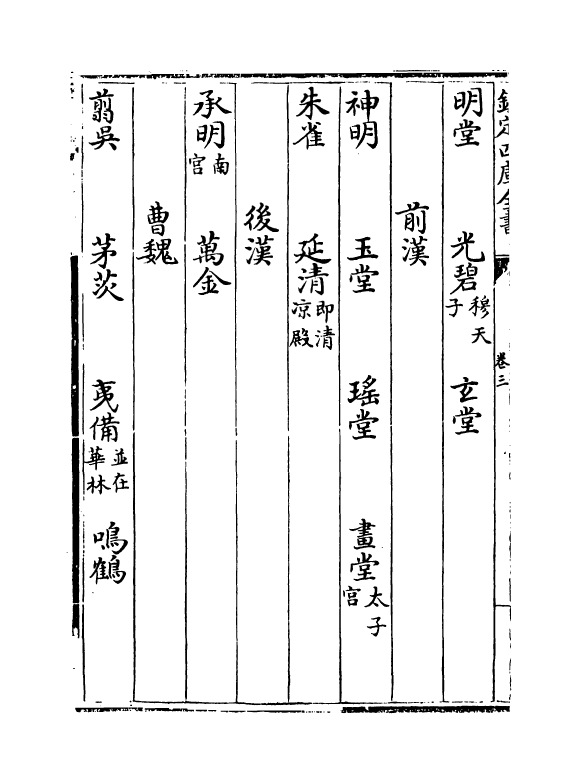 欽定四庫全書
卷三
明堂　光碧穆天子　玄堂
前漢
神明　玉堂　瑤堂　畫堂太子宮
朱雀　延清即清凉殿
後漢
承明南宮　萬金
曹魏
翦吳　茅茨　夷備並在華林　鳴鶴